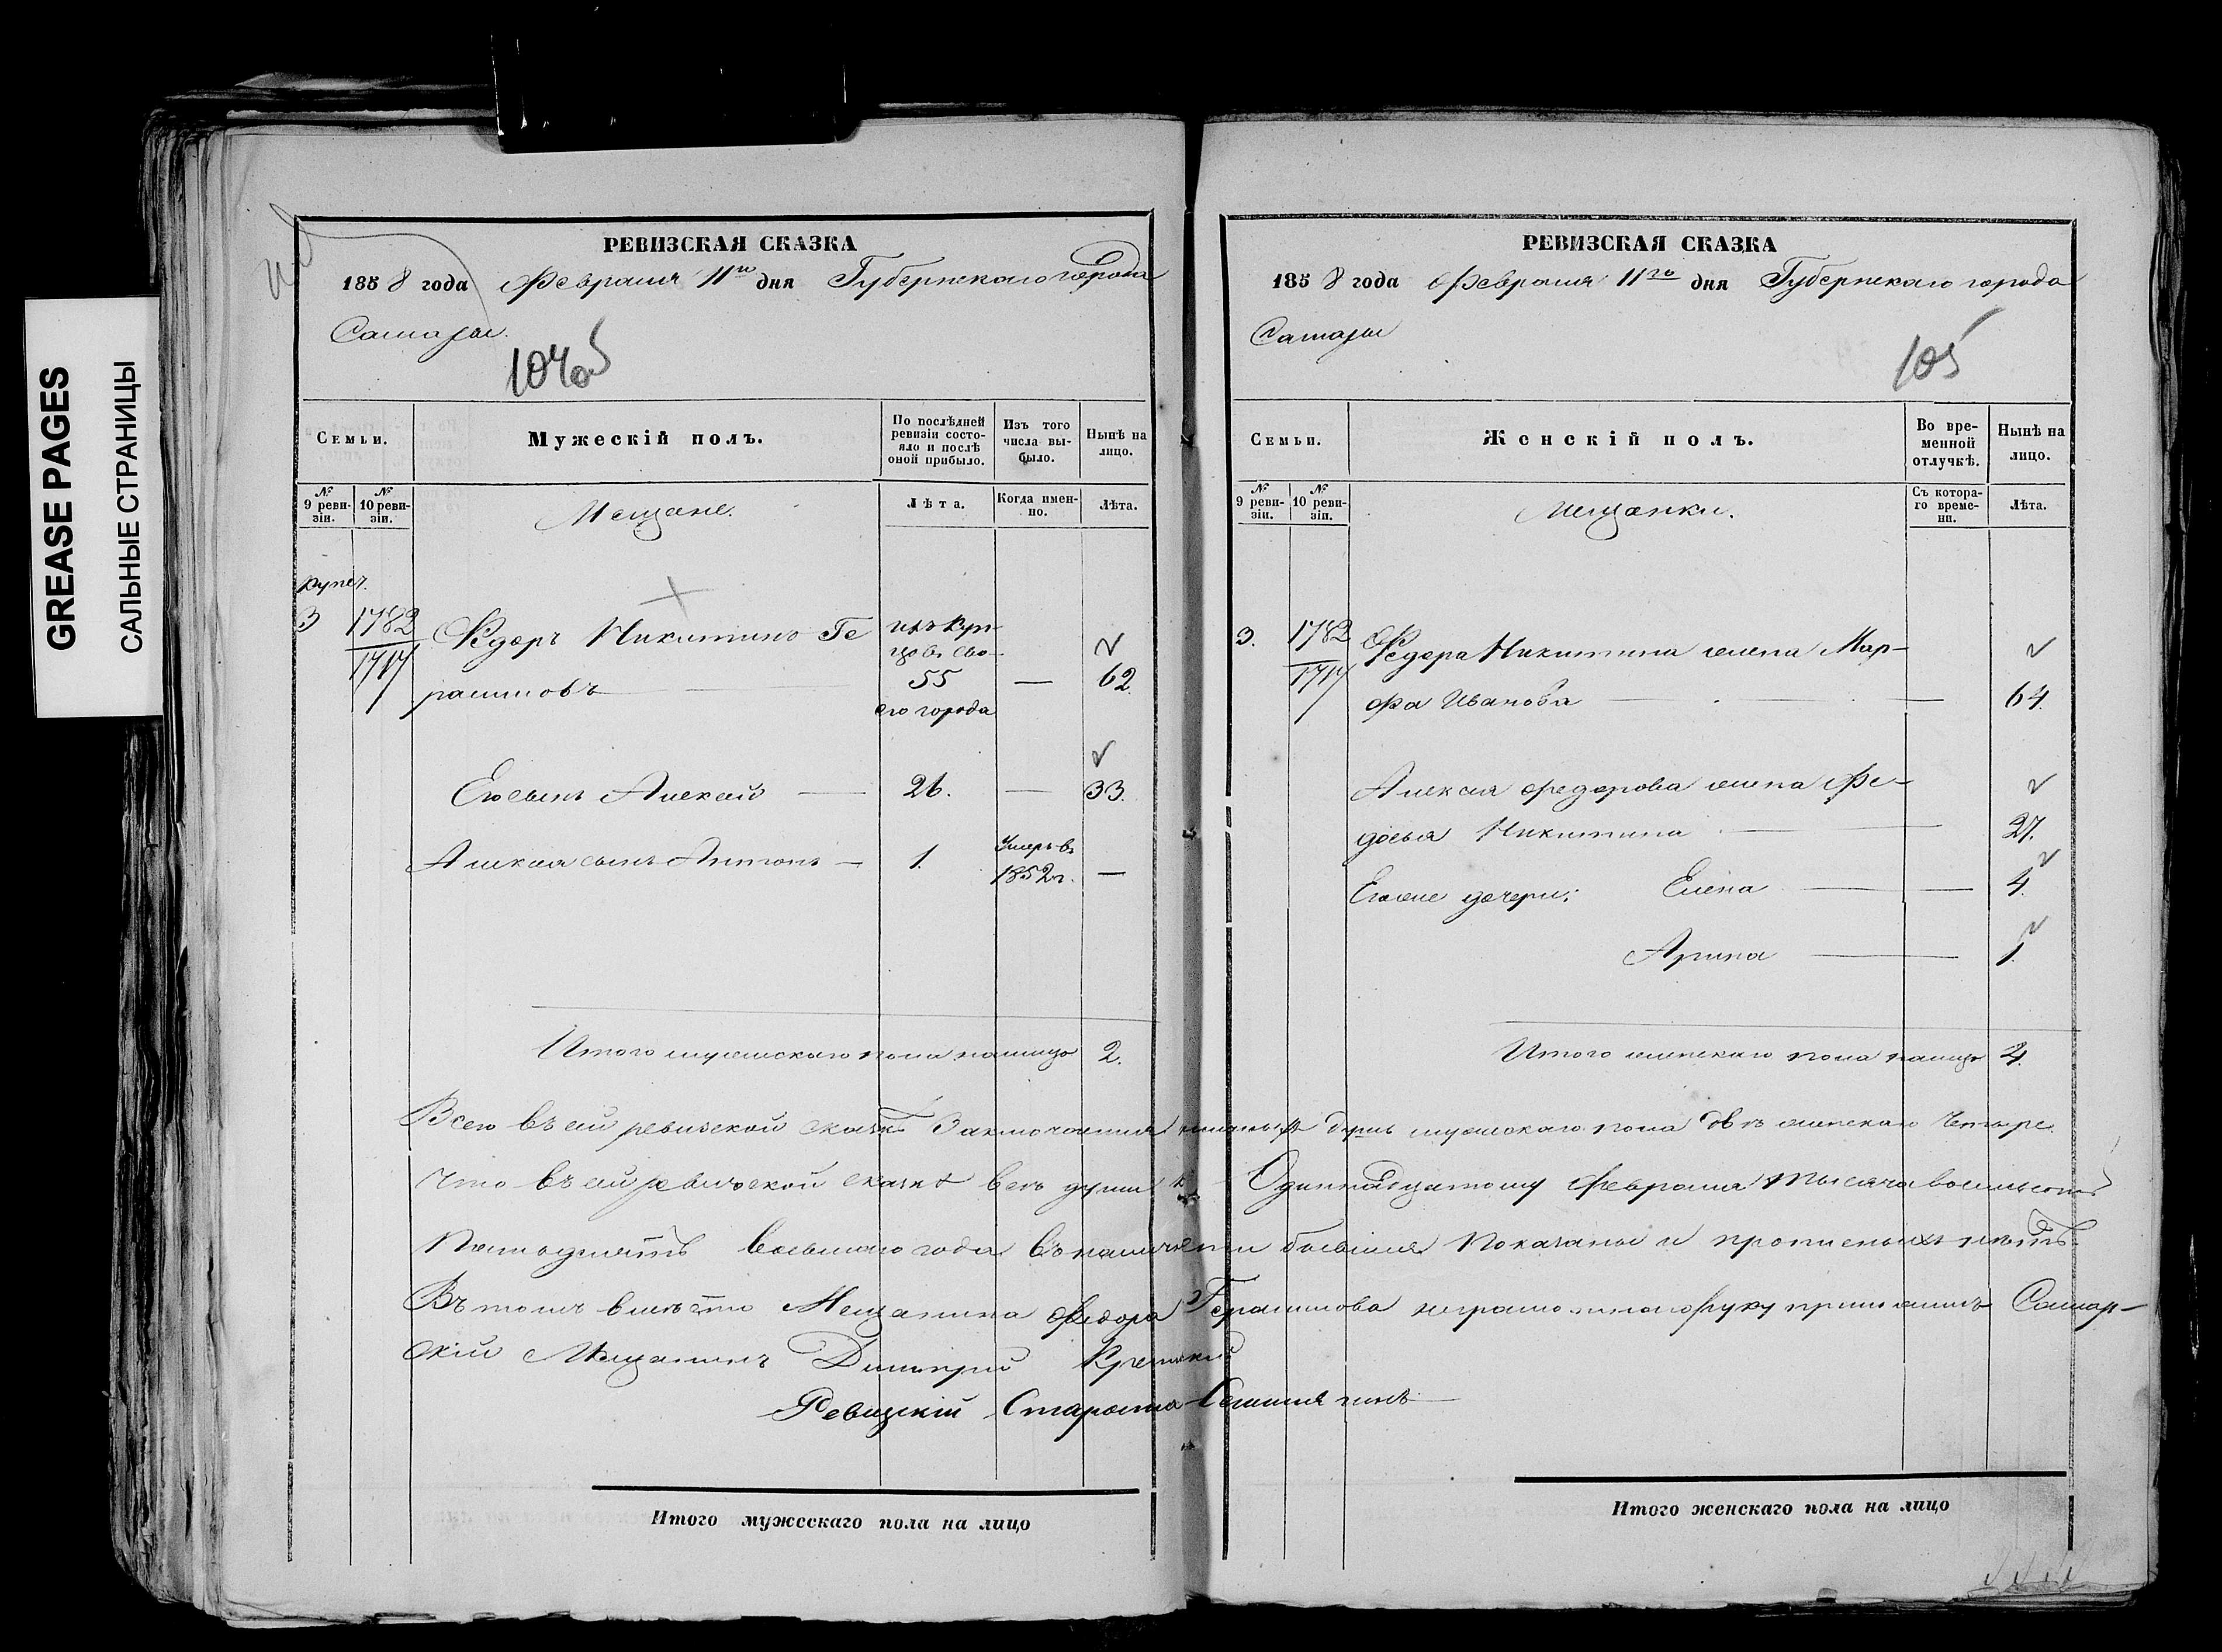 GREASE PAGES
САЛЬНЫЕ СТРАНИЦЫ
РЕВИЗСКАЯ СКАЗКА
1858 года Февраля 11го дня Губернскаго города
Самары.
105
Семьи.
Мужескій полъ.
По послѣдней ревизіи состояло и послѣ оной прибыло.
Изъ того числа выбыло.
Нынѣ на лицо.
№ 9 ревизіи.
№ 10 ревизіи.
Мещане.
Лѣта.
Когда именно.
Лѣта.
купеч.
3 1782 Федоръ Никитинъ Ге
1717 расимовъ
изъ Куп
цовъ се
55 — 62.
его города
Его сынъ Алексей — 26. — 33.
Алексея сынъ Антонъ — 1. Умеръ въ 1852 г. —
Итого мужескаго пола налицо 2.
РЕВИЗСКАЯ СКАЗКА
1858 года Февраля 11го дня Губернскаго города
Самары
105
Семьи.
Женскій полъ.
Во временной отлучкѣ.
Нынѣ на лицо.
№ 9 ревизіи.
№ 10 ревизіи.
Мещанки.
Съ котораго времени.
Лѣта.
3. 1782 Федора Никитина жена Мар-
1717 фа Иванова — — 64.
Алексея Федорова жена Фе-
досья Никитина — 27.
Его же дочери: Елена — — 4.
Арина — 1.
Итого женскаго пола налицо 4.
Всего въ сей ревизской сказкѣ Заключается наличныхъ душъ мужескаго пола двѣ женскаго Четыре.
Что въ сей ревизской сказкѣ все души къ Одиннадцатому Февраля тысяча восемьсотъ
Пятьдесятъ восьмаго года въ наличности бывшия показаны и прописныхъ нѣтъ.
Въ томъ вмѣсто Мещанина Федора Герасимова неграмотнаго руку приложилъ Самар-
скій Мещанинъ Димитрій
Ревизскій Староста
Итого мужескаго пола на лицо
Итого женскаго пола на лицо